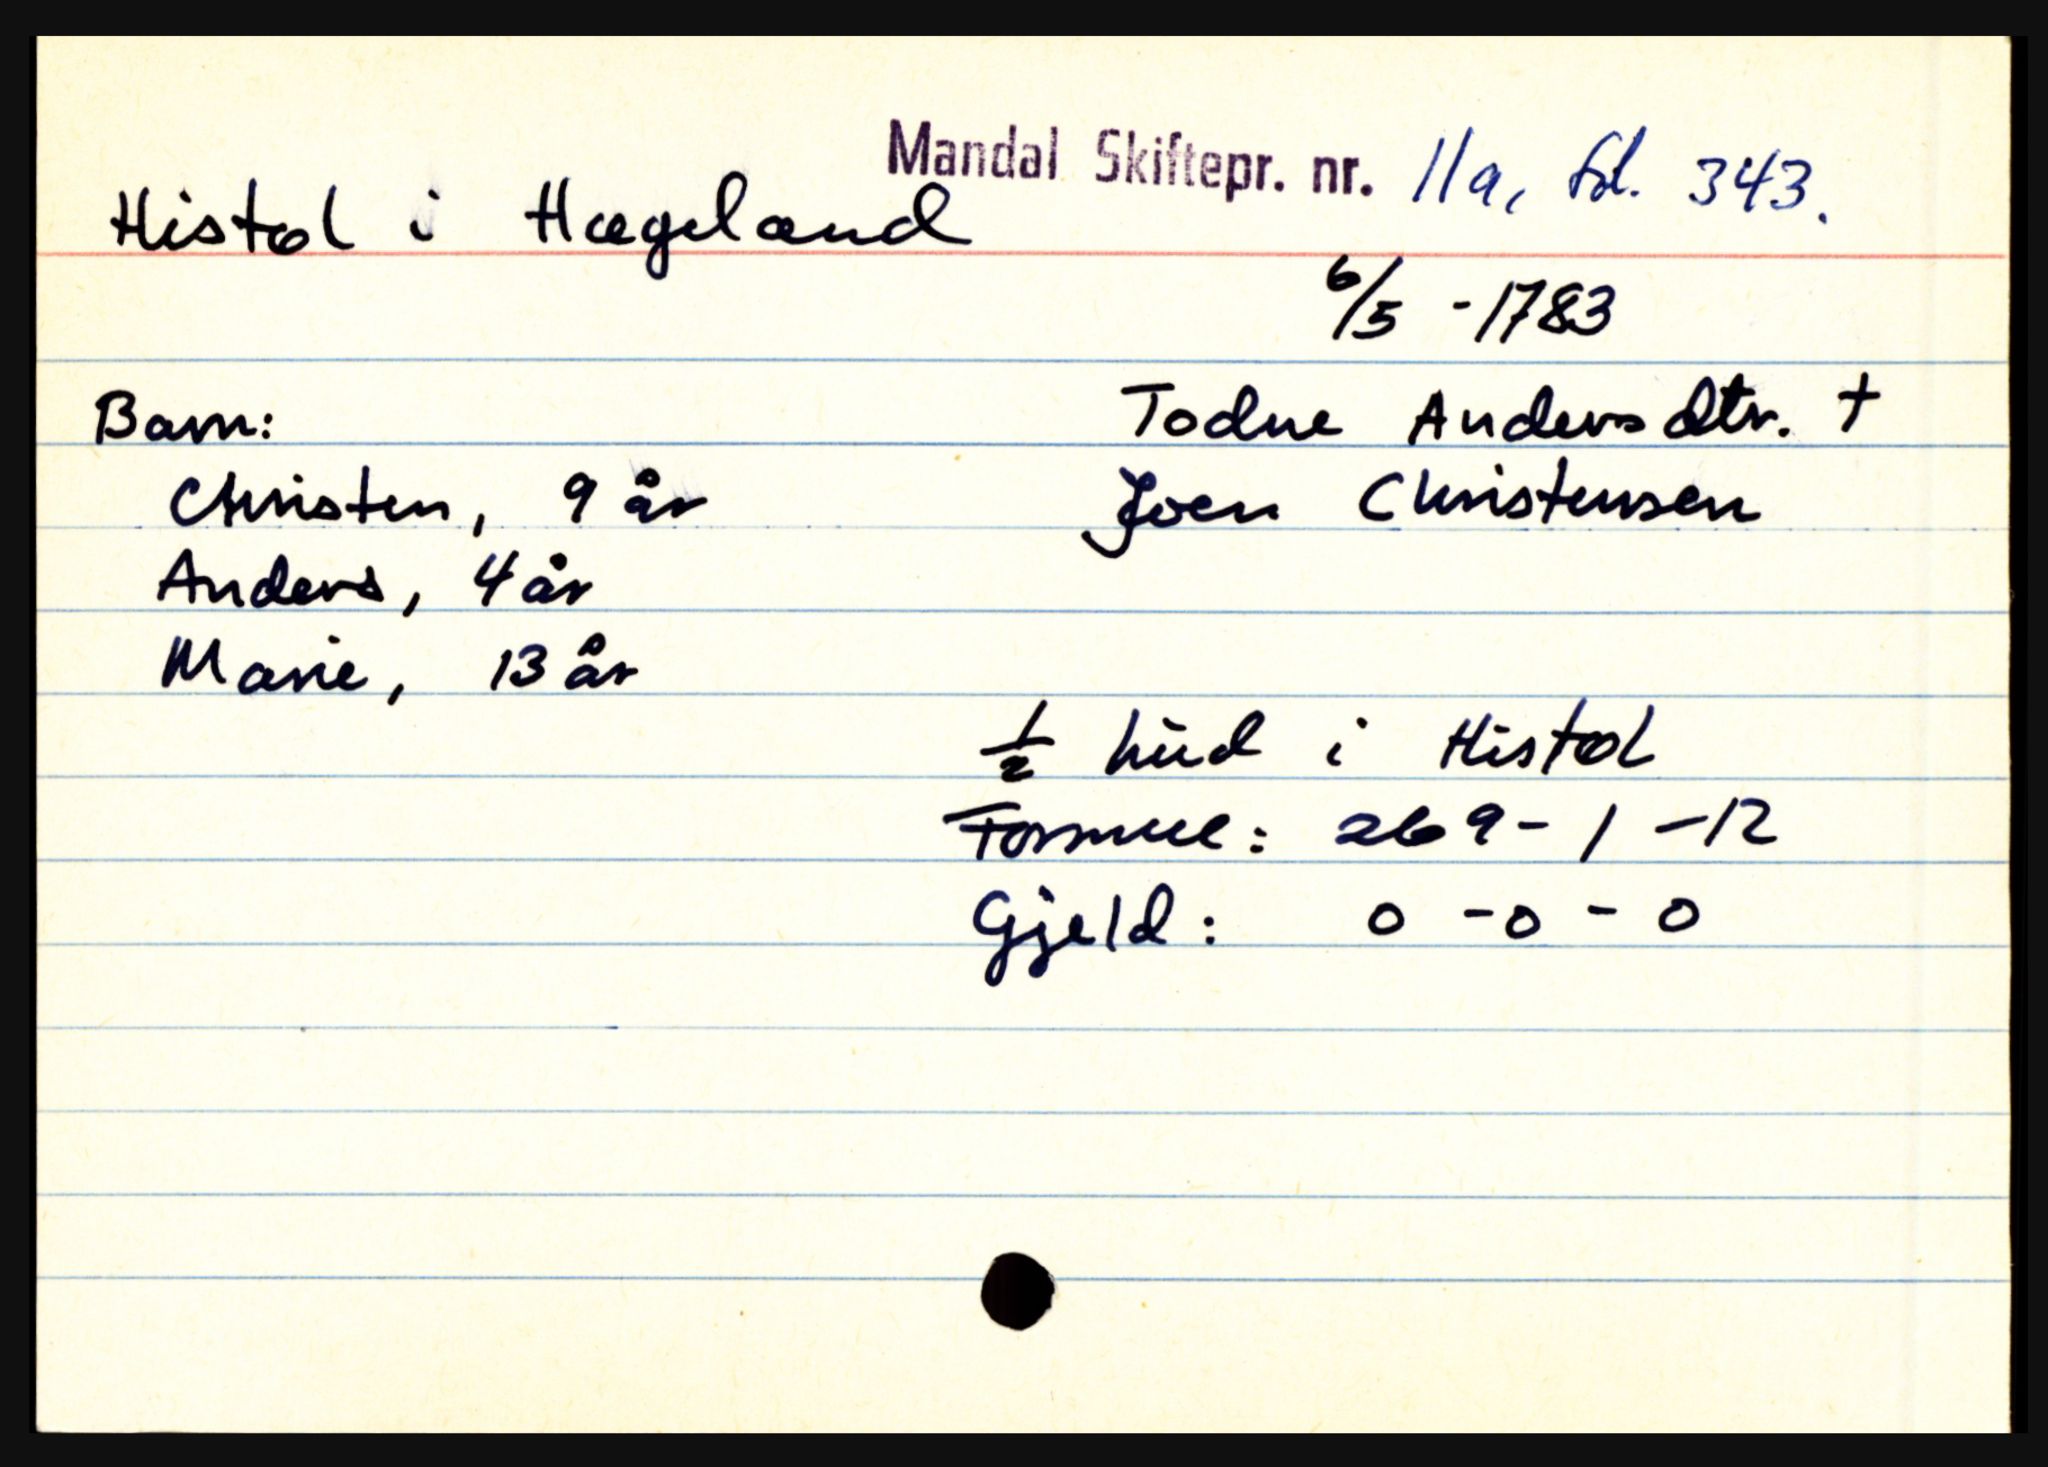 Mandal Skiftepr. nr. 11a, fol. 343.
Histøl i Hægeland
6/5 - 1783
Barn:
Todne Andersdtr. +
Christen, 9 år
Joen Christensen
Anders, 4 år
Marie, 13 år
1/2 hud i Histøl
Formue: 269 - 1 - 12
Gjeld: 0 - 0 - 0